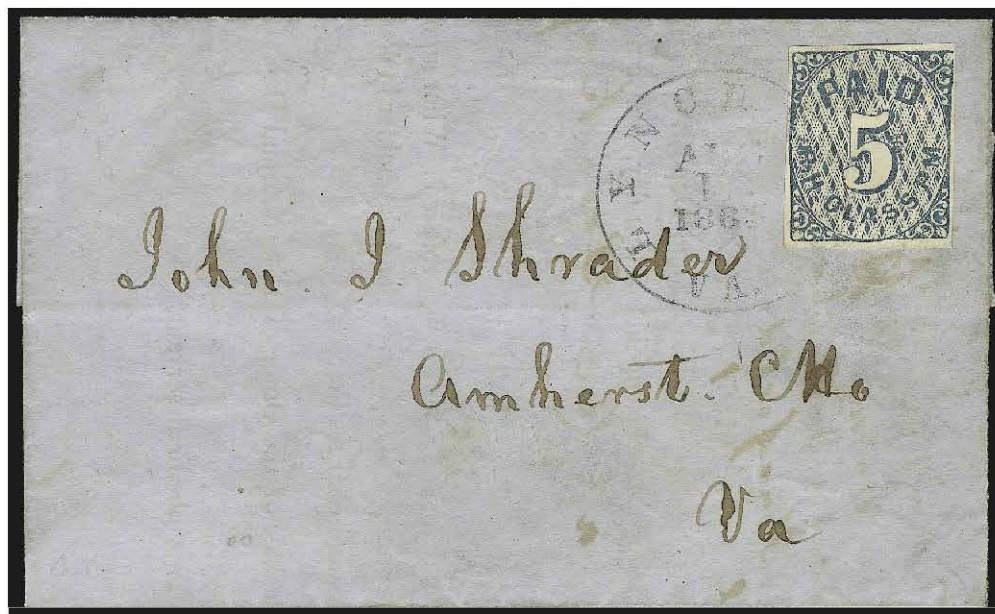 PAID
5
R.H. GLASS P.M
LYNCH
1
186
VA.
John. J Shrader
Amherst. CHo
Va